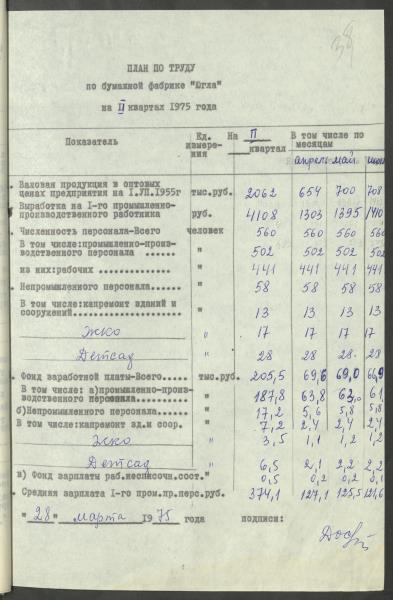 38
ПЛАН ПО ТРУДУ
по бумажной фабрике "Югла"
на II квартал 1975 года
Показатель Ед. измере-ния На II квартал В том числе по месяцам
апрель май июнь
Валовая продукция в оптовых
ценах предприятия на I.УП.1955г тыс.руб. 2062 654 700 708
Выработка на I-го промышленно-
производственного работника руб. 4108 1303 1395 1410
Численность персонала-Всего человек 560 560 560 560
В том числе:промышленно-произ-
водственного персонала ...... " 502 502 502 502
из них:рабочих ............. " 441 441 441 441
Непромышленного персонала...... " 58 58 58 58
В том числе:капремонт зданий и
сооружений................. " 13 13 13 13
ЖКО " 17 17 17 17
Детсад " 28 28 28 28
Фонд заработной платы-Всего..... тыс.руб. 205,5 69,6 69,0 66,9
В том числе: а)промышленно-произ-
водственного персонала..... " 187,8 63,8 63,0 61,
б)Непромышленного персонала..... " 17,2 5,6 5,8 5,8
В том числе:капремонт зд.и соор. " 7,2 2,4 2,4 2,4
ЖКО " 3,5 1,1 1,2 1,2
Детсад " 6,5 2,1 2,2 2,2
в) Фонд зарплаты раб.несписочн.сост." 0,5 0,2 0,2 0,1
Средняя зарплата I-го пром.пр.перс.руб. 374,1 127,1 125,5 121,6
"28" марта 1975 года подписи: